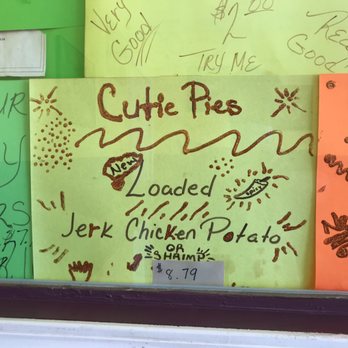 Very
Good
$2.00
TRY ME
Good
Cutie Pies
New
Loaded
Spicy
Jerk Chicken Potato
OR
SHRIMP
$8.79